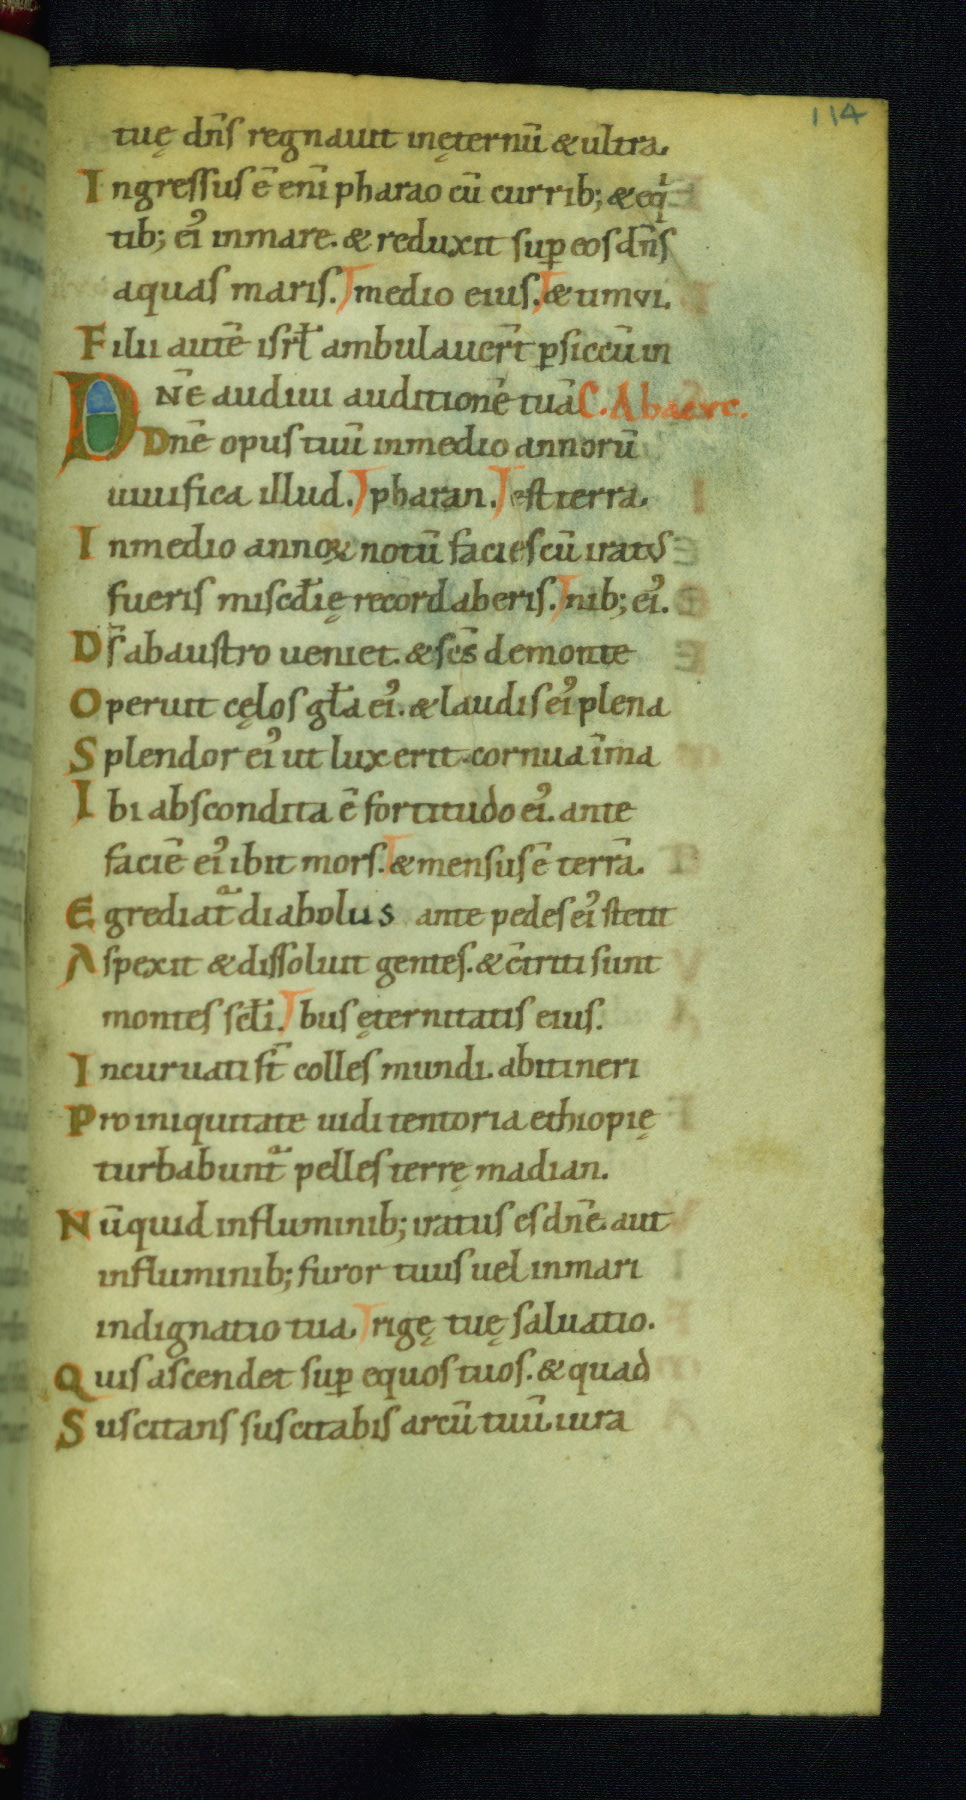 114
tuę dn̄s regnauit inęternū & ultra.
Ingressus ē eni̅ pharao cū currib; & eq͛
tib; ei᾽ inmare. & reduxit sup̱ eos dn̄s
aquas maris. medio eius. & umvi.
Filii aute̅ isrł ambulauer̅t p̱siccū in
Dn̅e audiui auditione̅ tuā C. Abacvc.
Dn̅e opus tuū inmedio annorū
uiuifica illud. pharan. est terra.
Inmedio annoꝝ notū facies cū iratus
fueris misc̅dię recordaberis. nib; ei᾽.
Ds̅ abaustro ueniet. & sc̅s demonte
Operuit cęlos gła ei᾽. & laudis ei᾽ plena
Splendor ei᾽ ut lux erit. cornua i̅ma
Ibi abscondita ē fortitudo ei᾽. ante
facie̅ ei᾽ ibit mors. & mensus ē terrā.
Egrediatᷓ diabolus ante pedes ei᾽ stetit
Aspexit & dissoluit gentes. & c̅triti sunt
montes sc̅łi. bus ęternitatis eius.
Incuruati st̅ colles mundi. abitineri
Pro iniquitate uidi tentoria ethiopię
turbabuntᷓ pelles terrę madian.
Nūquid influminib; iratus es dn̅e. aut
influminib; furor tuus uel inmari
indignatio tua. rigę tuę saluatio.
Quis ascendet sup̱ equos tuos. & quad
Suscitans suscitabis arcū tuū. iura